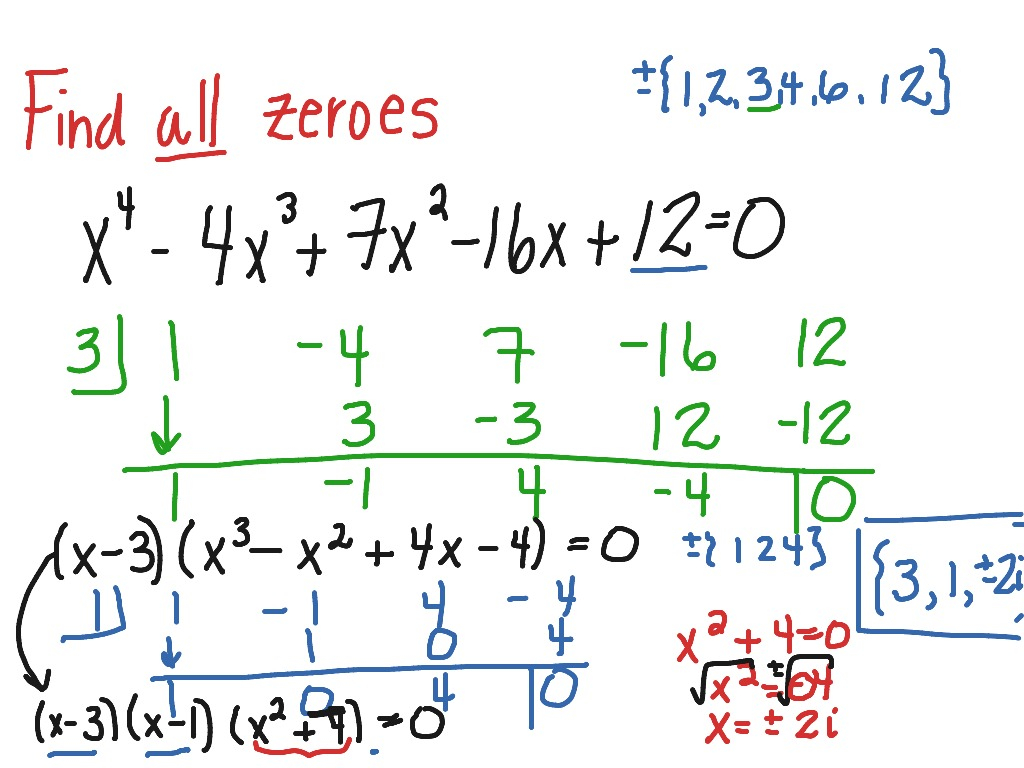 ± {1, 2, 3, 4, 6, 12}
Find all zeroes
x⁴ - 4x³ + 7x² - 16x + 12 = 0
3 1 -4 7 -16 12
↓ 3 -3 12 -12
1 -1 4 -4 0
(x-3)(x³ - x² + 4x - 4) = 0
± {1 2 4}
{3, 1, ±2i
1 1 -1 4 -4
↓ 1 0 4
1 0 4 0
x² + 4 = 0
√x² = ±√-4
x = ±2i
(x-3)(x-1)(x² + 4) = 0